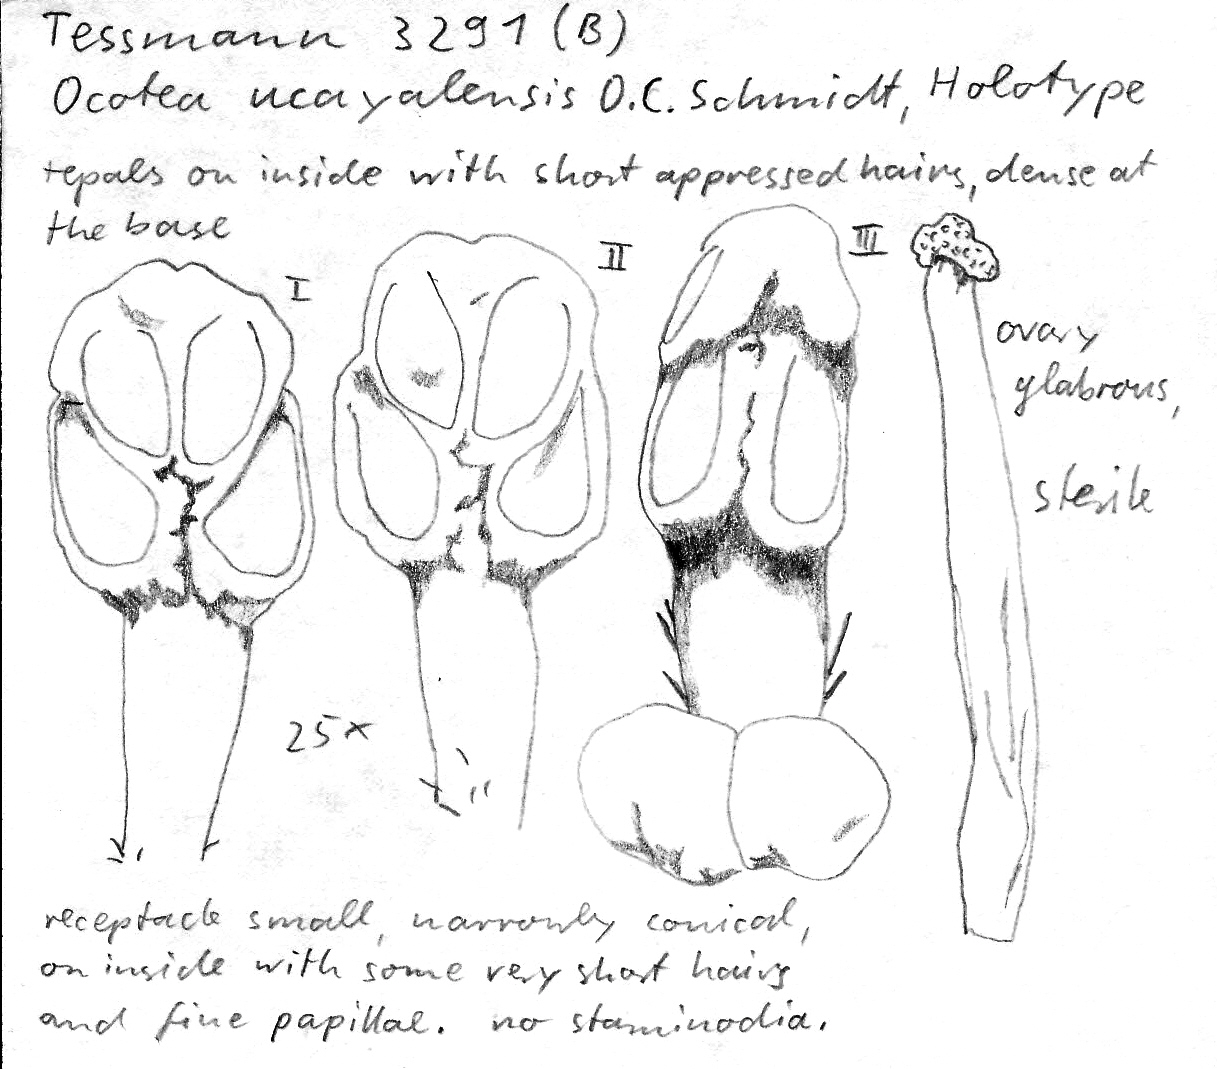 Tessmann 3291 (B)
Ocotea ucayalensis O.C. Schmidt, Holotype
tepals on inside with short appressed hairs, dense at
the base
I
II
III
ovary
glabrous,
sterile
25x
receptacle small, narrowly conical,
on inside with some very short hairs
and fine papillae. no staminodia.